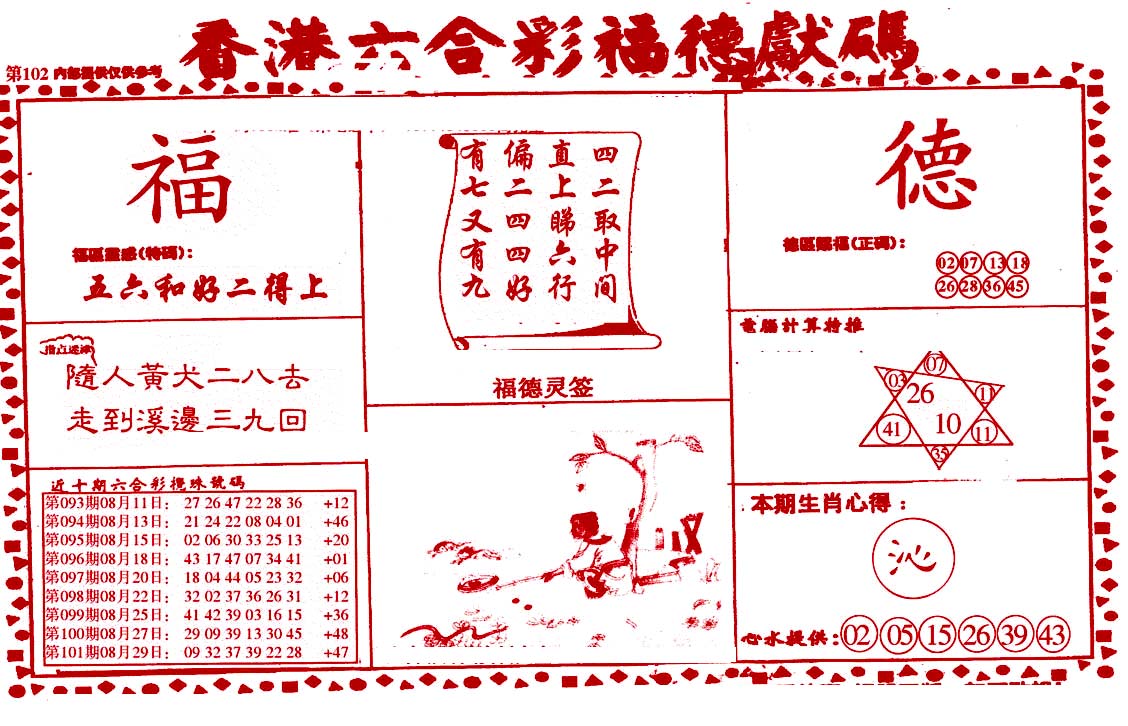 香港六合彩福德獻碼
第102 内部提供仅供参考
福
福區靈感(特碼):
五六和好二得上
指点迷津
隨人黃犬二八去
走到溪邊三九回
近十期六合彩攪珠號碼
第093期08月11日: 27 26 47 22 28 36 +12
第094期08月13日: 21 24 22 08 04 01 +46
第095期08月15日: 02 06 30 33 25 13 +20
第096期08月18日: 43 17 47 07 34 41 +01
第097期08月20日: 18 04 44 05 23 32 +06
第098期08月22日: 32 02 37 36 26 31 +12
第099期08月25日: 41 42 39 03 16 15 +36
第100期08月27日: 29 09 39 13 30 45 +48
第101期08月29日: 09 32 37 39 22 28 +47
四二取中间
直上睇六行
偏二四四好
有七又有九
福德灵签
德
德區賜福(正碼):
02 07 13 18
26 28 36 45
電腦計算特推
07
03 26 11
41 10 11
35
本期生肖心得:
沁
心水提供: 02 05 15 26 39 43